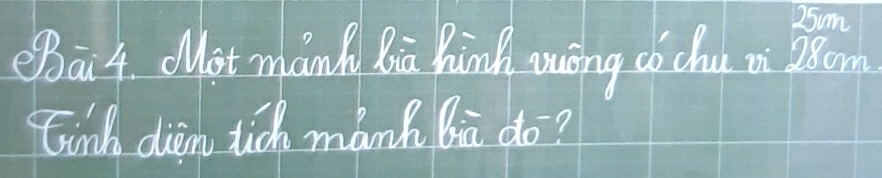 25cm
Bài 4. Một mảnh bìa hình vuông có chu vi 28cm.
Tính diện tích mảnh bìa đó?